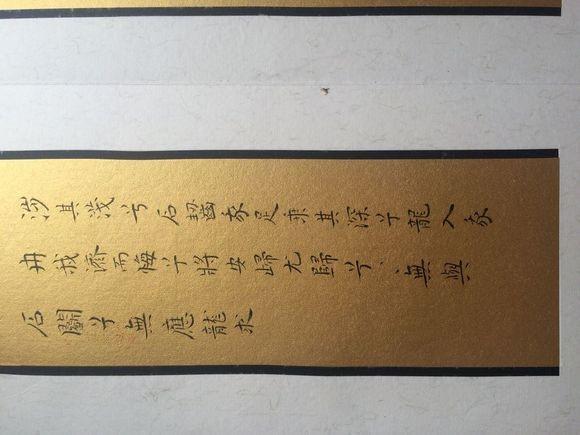 涉其淺兮石齧我足乘其深兮龍入我
舟我濟而悔兮將安歸尤歸兮、、無與
石鬭兮無應龍求